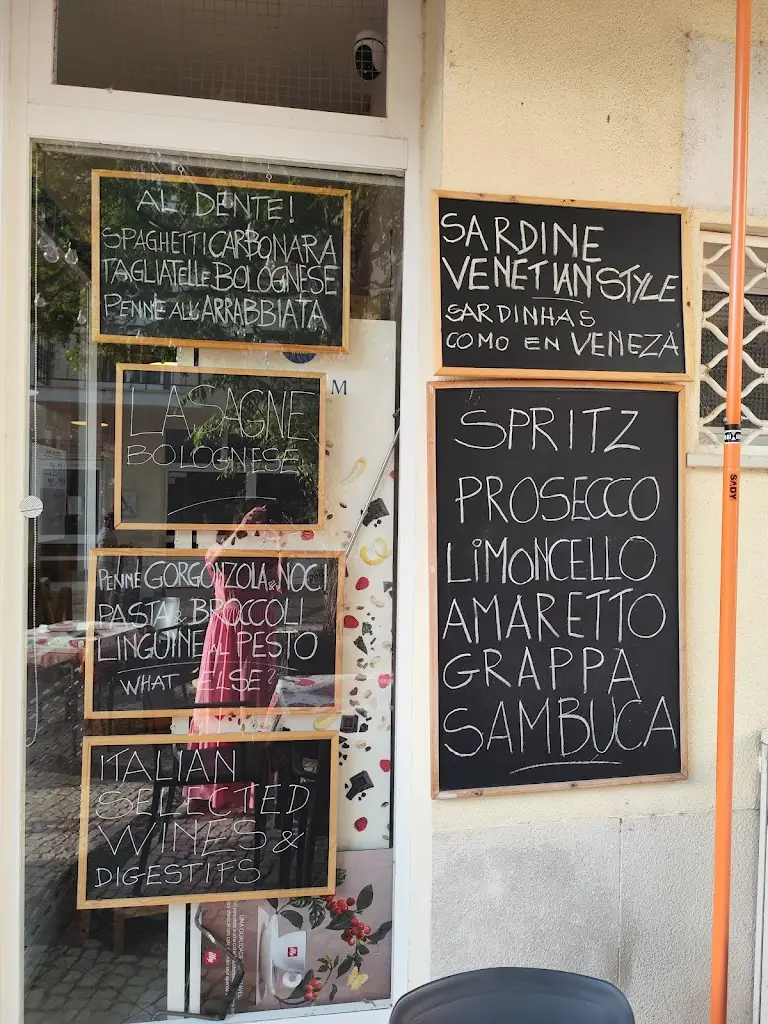 AL DENTE!
SPAGHETTI CARBONARA
TAGLIATELLE BOLOGNESE
PENNE ALL'ARRABBIATA
LASAGNE
BOLOGNESE
PENNE GORGONZOLA & NOCI
PASTA & BROCCOLI
LINGUINE AL PESTO
WHAT ELSE?
ITALIAN
SELECTED
WINES &
DIGESTIFS
SARDINE
VENETIAN STYLE
SARDINHAS
COMO EN VENEZA
SPRITZ
PROSECCO
LIMONCELLO
AMARETTO
GRAPPA
SAMBUCA
M
illy
illy
UNA QUALIDADE
SADY